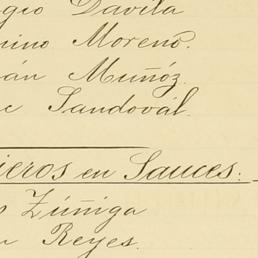 gio Dávila
nino Moreno.
án Muñóz.
c Sandovál.
ieros en Sauces.
o Zúñiga
n Reyes.